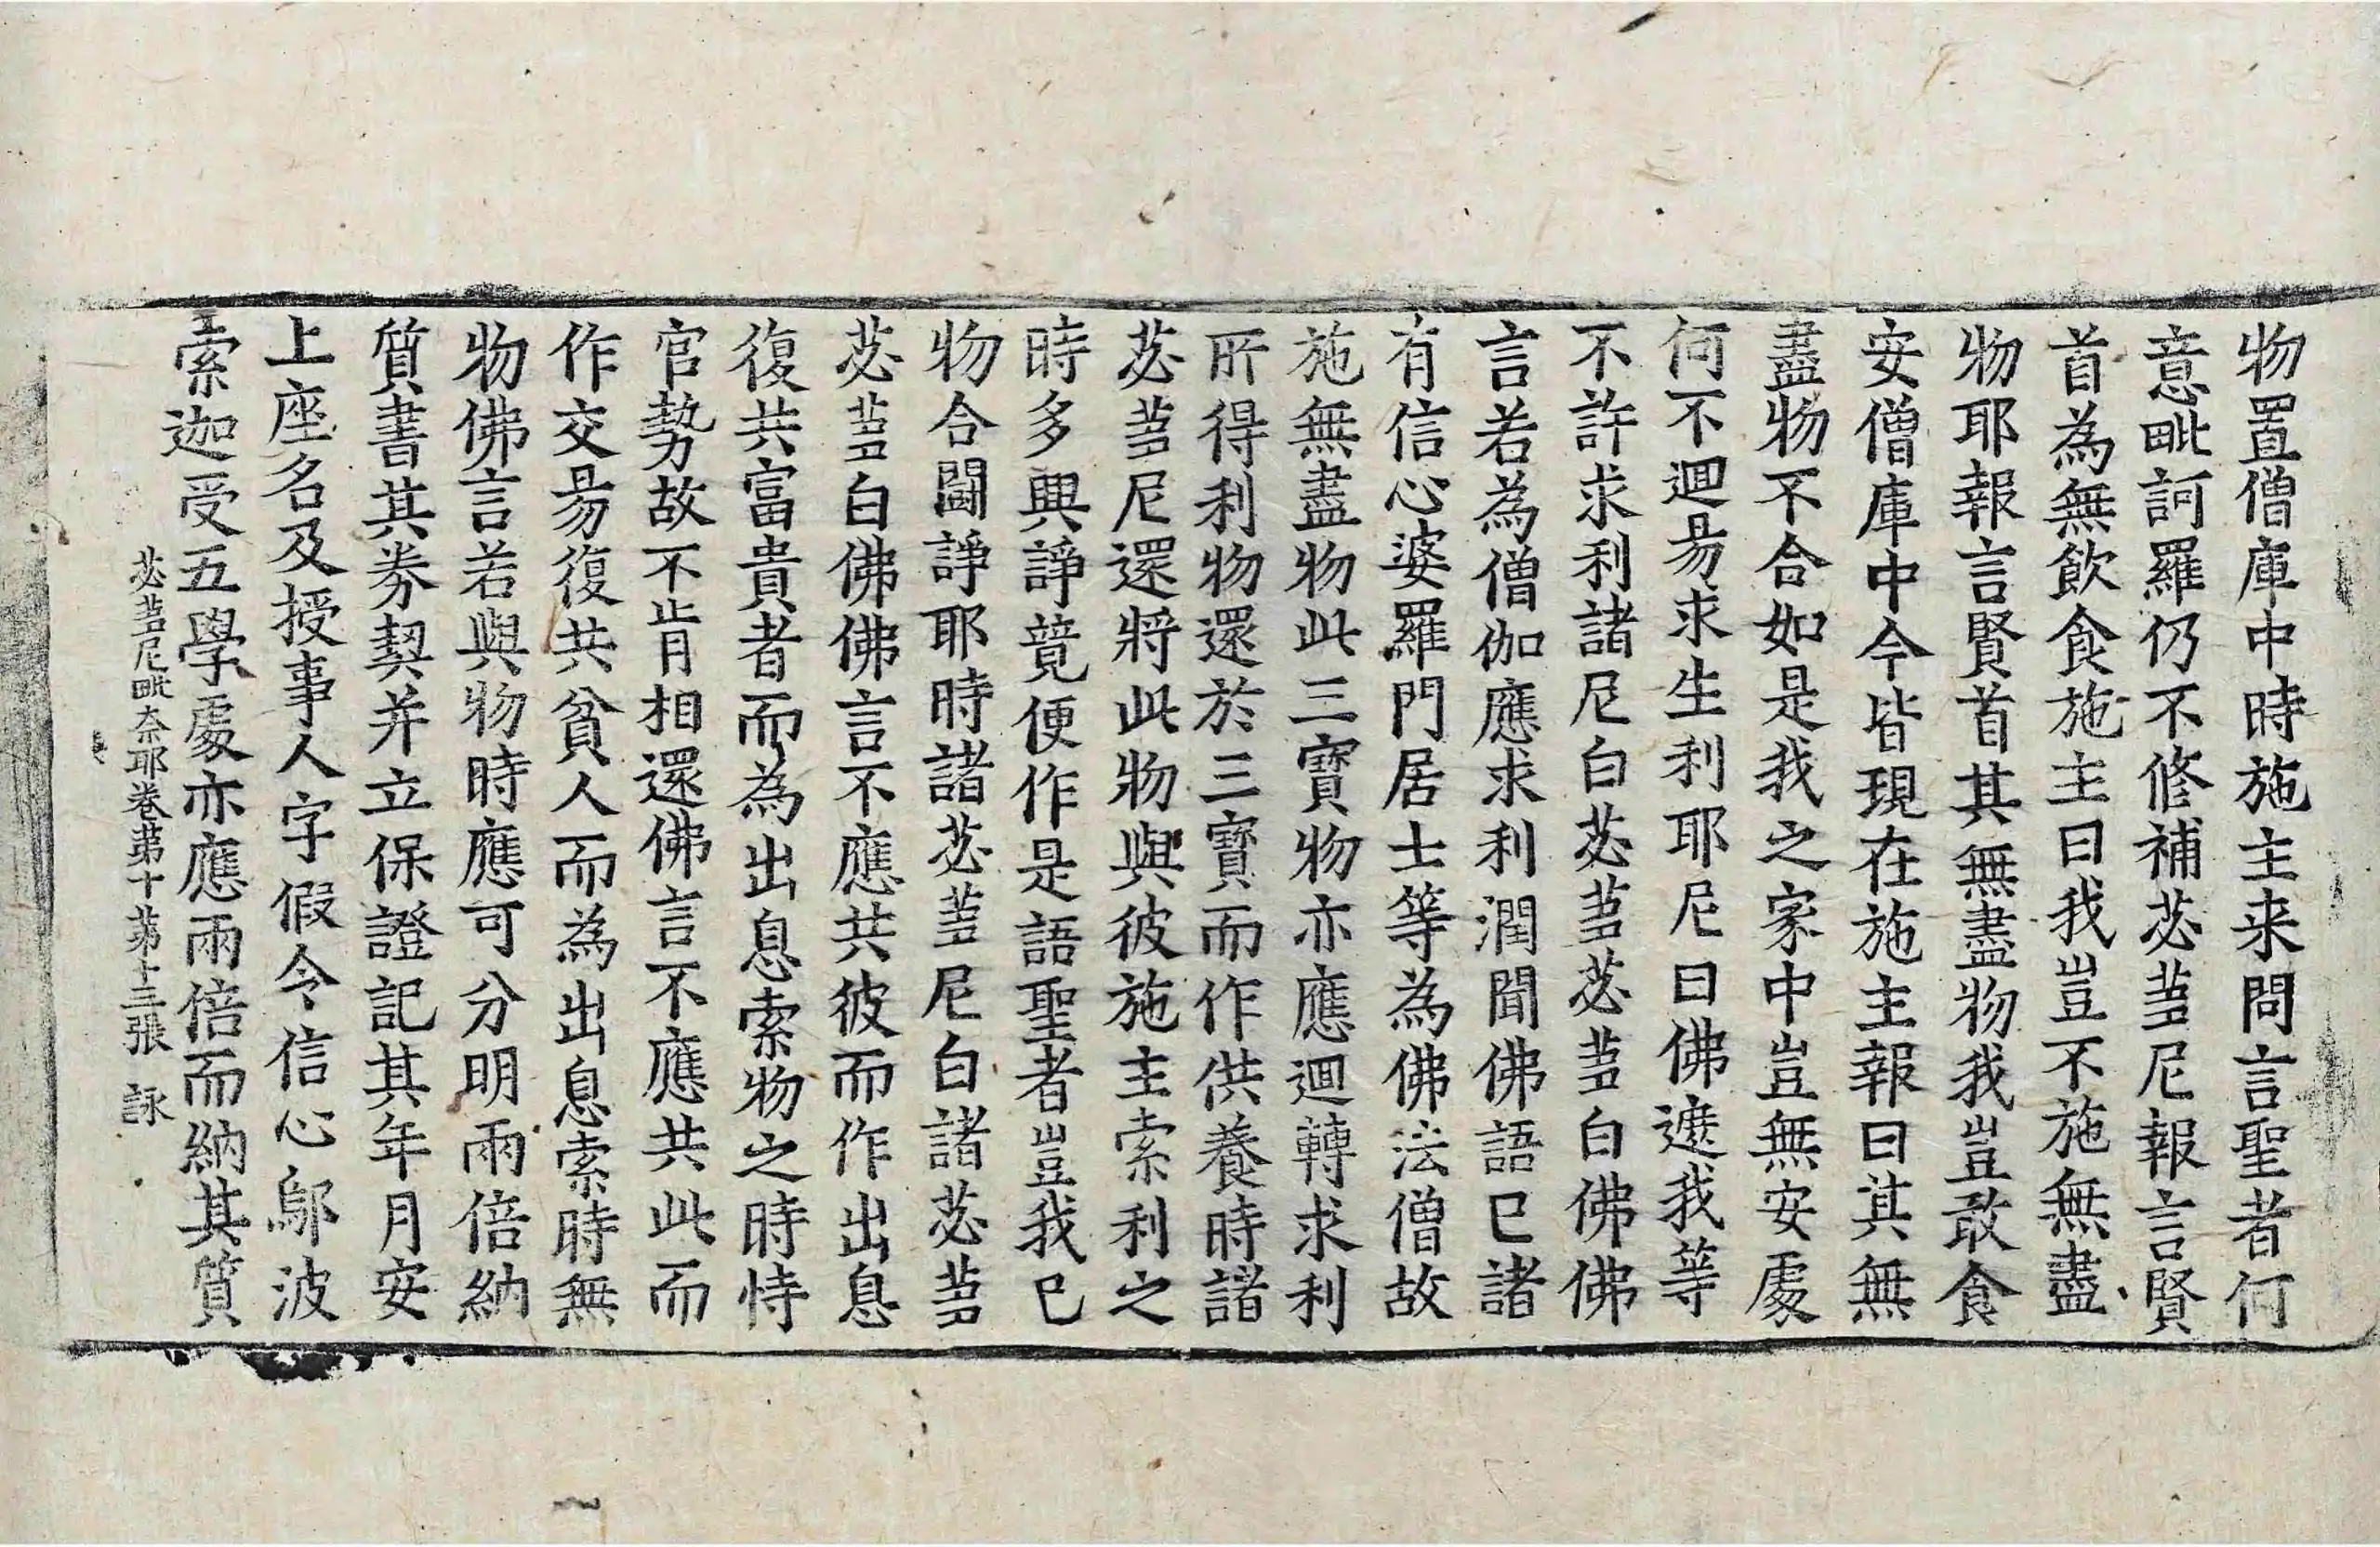 物置僧庫中時施主来問言聖者何
意毗訶羅仍不修補苾蒭尼報言賢
首為無飲食施主曰我豈不施無盡
物耶報言賢首其無盡物我豈敢食
安僧庫中今皆現在施主報曰其無
盡物不合如是我之家中豈無安處
何不迴昜求生利耶尼曰佛遮我等
不許求利諸尼白苾蒭苾蒭白佛佛
言若為僧伽應求利潤聞佛語已諸
有信心婆羅門居士等為佛法僧故
施無盡物此三寶物亦應迴轉求利
所得利物還於三寶而作供養時諸
苾蒭尼還將此物與彼施主索利之
時多興諍競便作是語聖者豈我已
物合鬪諍耶時諸苾蒭尼白諸苾蒭
苾蒭白佛佛言不應共彼而作出息
復共富貴者而為出息索物之時恃
官勢故不肯相還佛言不應共此而
作交昜復共貧人而為出息索時無
物佛言若與物時應可分明兩倍納
質書其券契并立保證記其年月安
上座名及授事人字假令信心鄔波
索迦受五學處亦應兩倍而納其質
苾蒭尼毗奈耶卷第十第十三張 詠